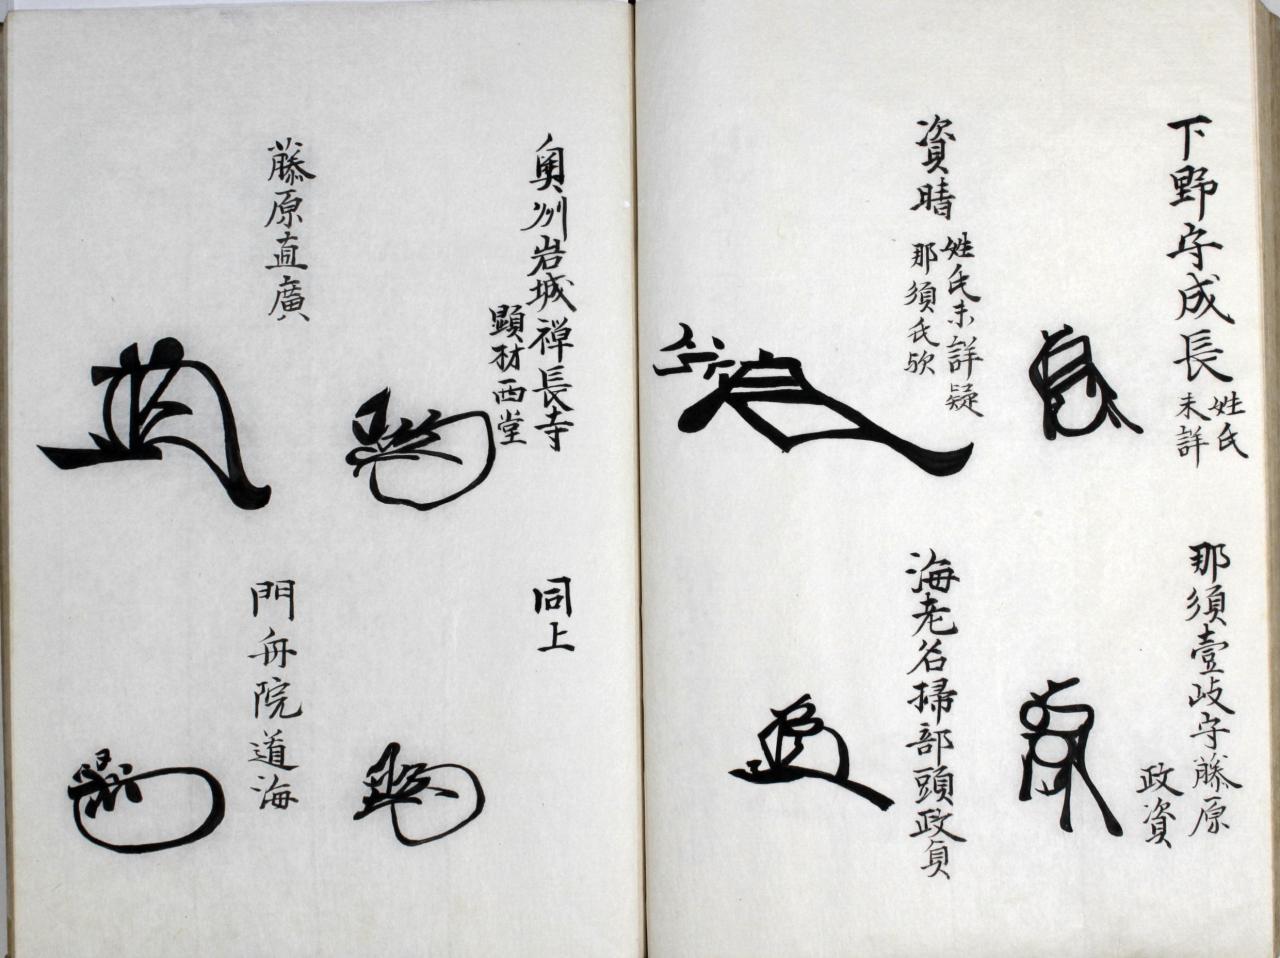 下野守成長
姓氏
未詳
那須壹岐守藤原
政資
資晴
姓氏未詳疑
那須氏歟
海老名掃部頭政貞
奥州岩城禅長寺
顕材西堂
同上
藤原直廣
門舟院道海